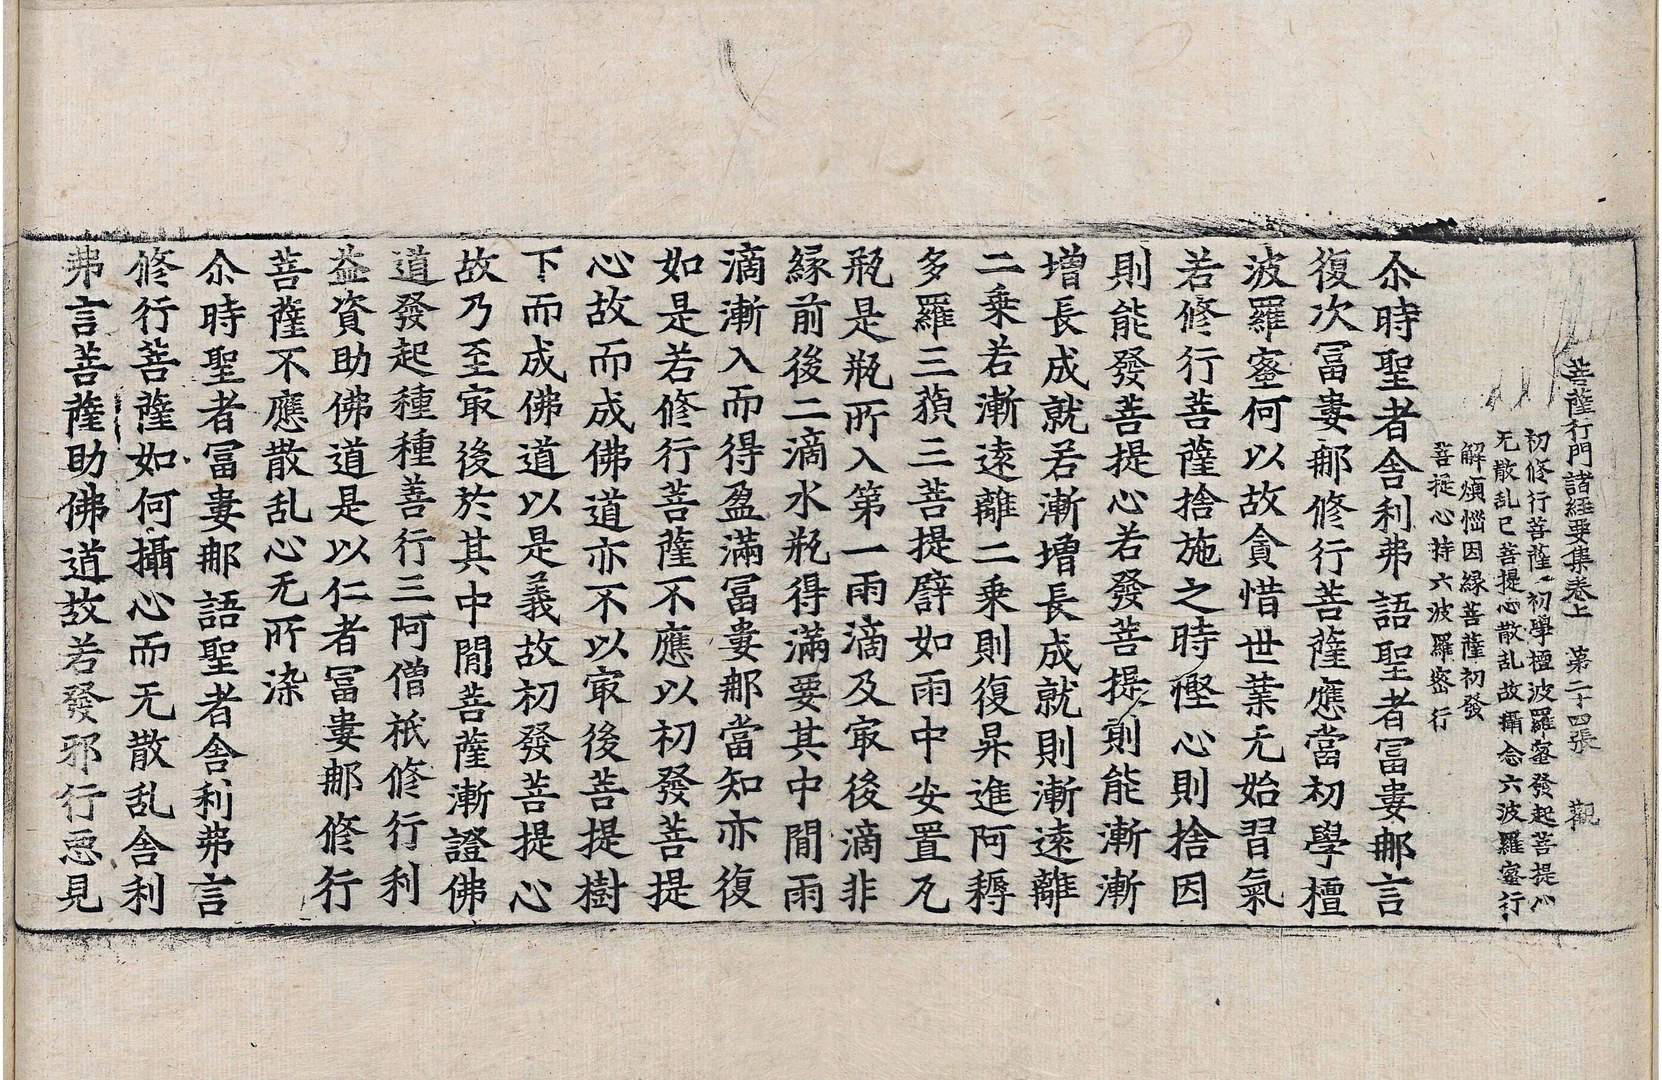 菩薩行門諸経要集卷上　第二十四張　觀
初修行菩薩初學檀波羅蜜發起菩提心
无散乱已菩提心散乱故攝念六波羅蜜行
解煩惱因縁菩薩初發
菩提心持六波羅蜜行
尒時聖者舍利弗語聖者冨婁那言
復次冨婁那修行菩薩應當初學檀
波羅蜜何以故貪惜世業无始習氣
若修行菩薩捨施之時慳心則捨因
則能發菩提心若發菩提則能漸漸
增長成就若漸增長成就則漸遠離
二乗若漸遠離二乗則復㝵進阿耨
多羅三藐三菩提譬如雨中安置瓦
瓶是瓶所入第一雨滴及㝡後滴非
縁前後二滴水瓶得滿要其中間雨
滴漸入而得盈滿冨婁那當知亦復
如是若修行菩薩不應以初發菩提
心故而成佛道亦不以㝡後菩提樹
下而成佛道以是義故初發菩提心
故乃至㝡後於其中間菩薩漸證佛
道發起種種善行三阿僧祇修行利
益資助佛道是以仁者冨婁那修行
菩薩不應散乱心无所染
尒時聖者冨婁那語聖者舍利弗言
修行菩薩如何攝心而无散乱舍利
弗言菩薩助佛道故若發邪行惡見